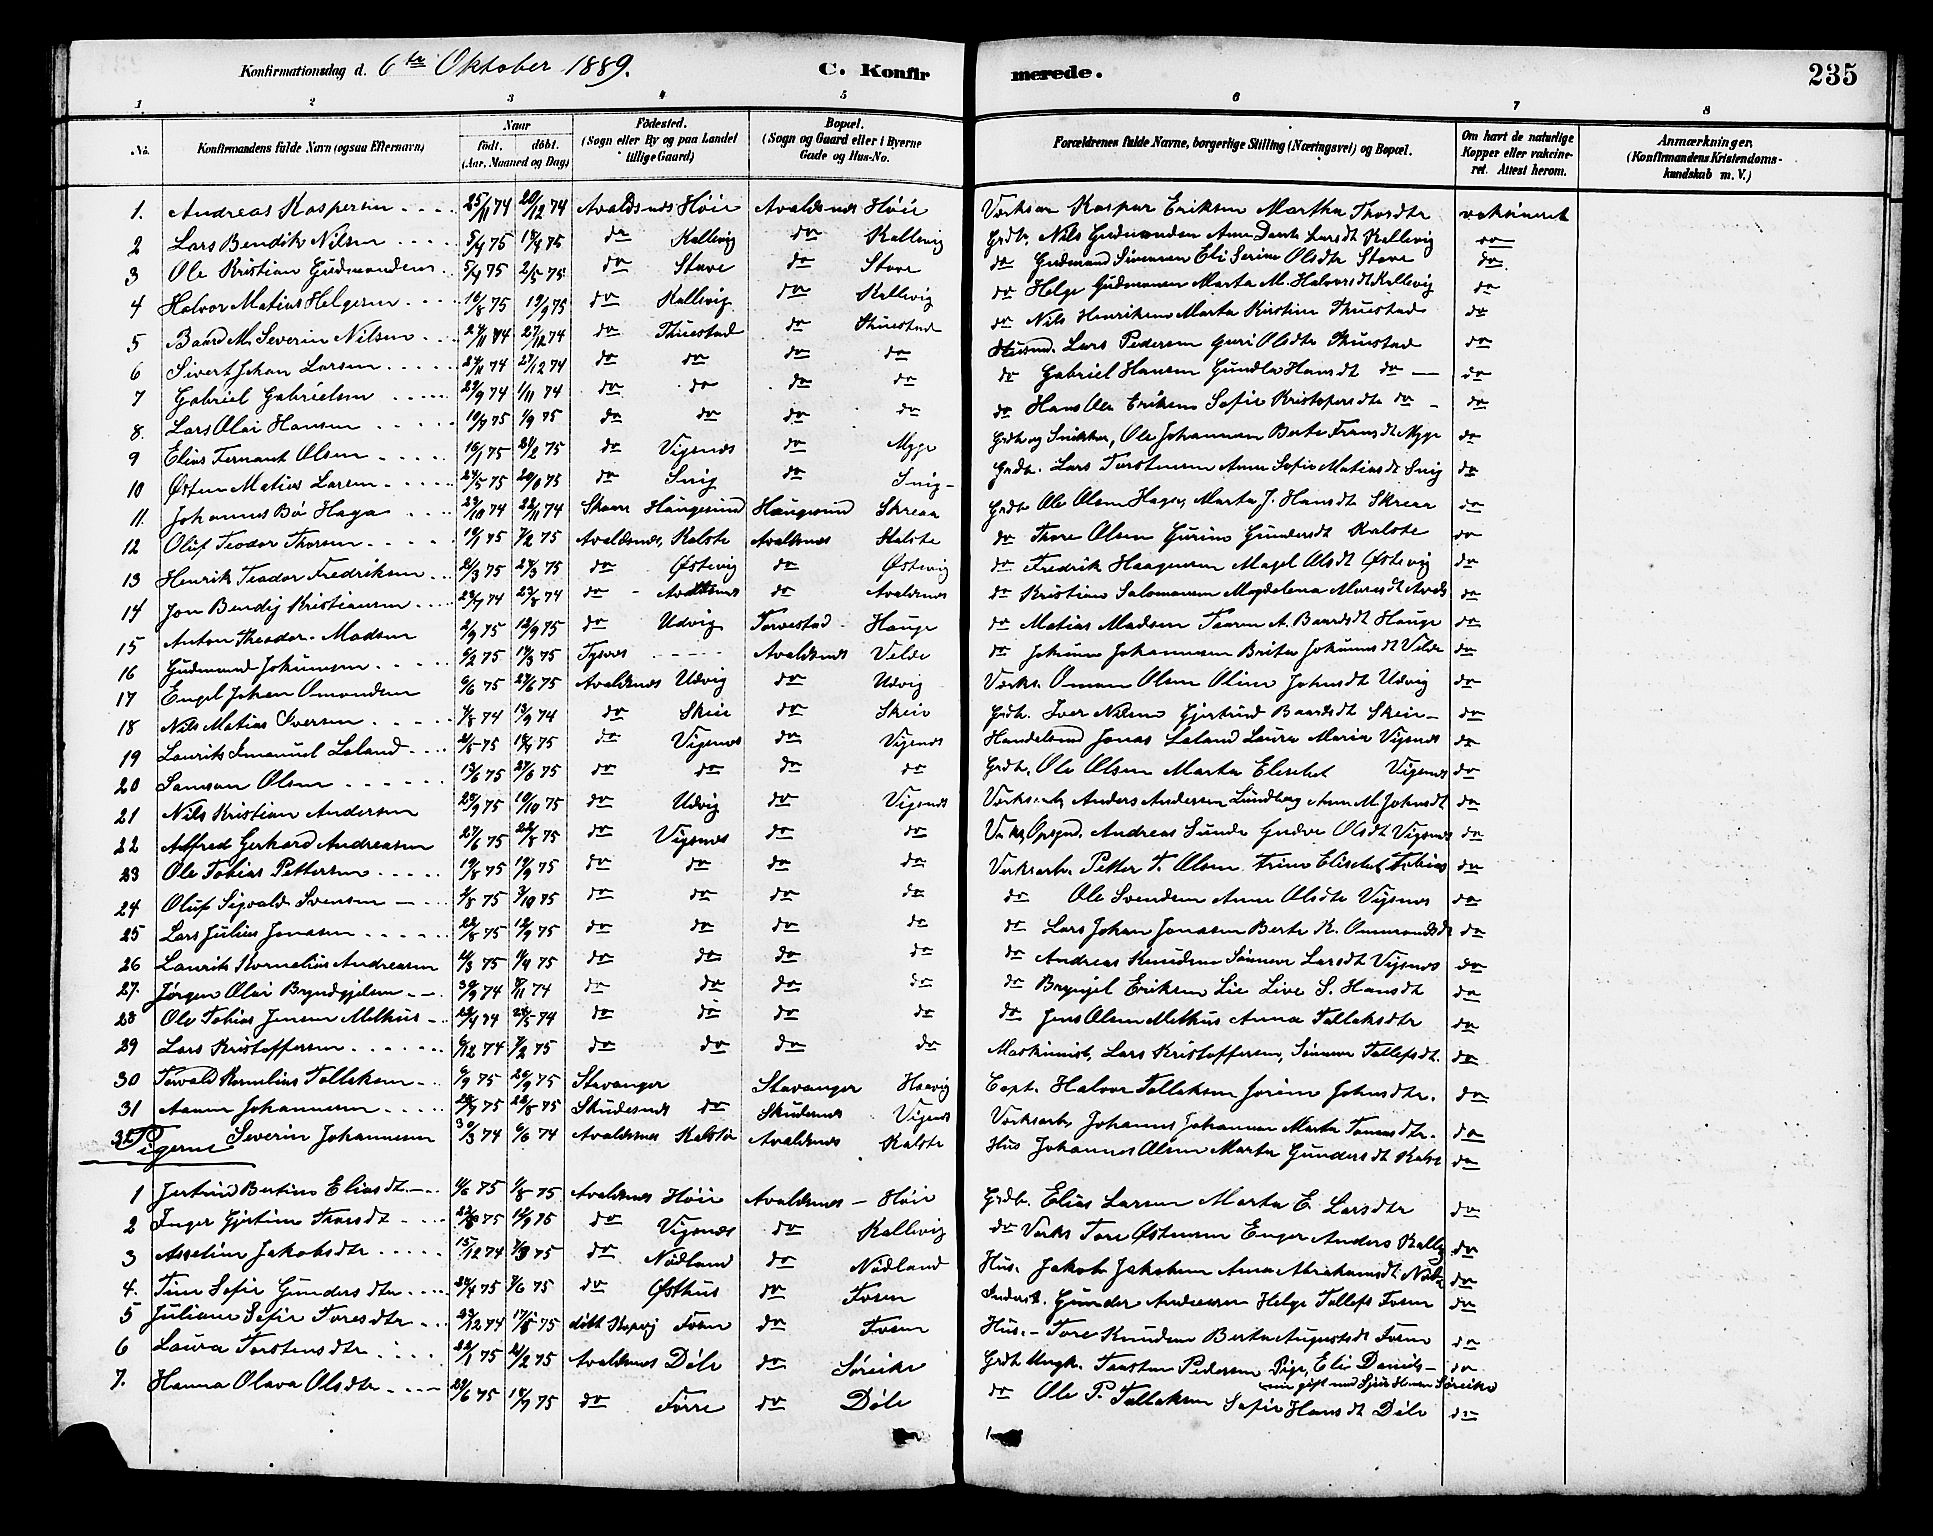 Konfirmationsdag d. 6te Oktober 1889. C. Konfirmerede. 235
1 2 3 4 5 6 7 8
No. Konfirmandens fulde Navn (ogsaa Efternavn) Naar født. døbt. (Aar, Maaned og Dag) Fødested. (Sogn eller By og paa Landet tillige Gaard) Bopæl. (Sogn og Gaard eller i Byerne Gade og Hus-No. Forældrenes fulde Navne, borgerlige Stilling (Næringsvei) og Bopæl. Om havt de naturlige Kopper eller vakcineret. Attest herom. Anmærkninger. (Konfirmandens Kristendomskundskab m. V.)
1. Andreas Kaspersen 25/11 74 26/12 74 Avaldsnes Høie Avaldsnes Høie Kaspar Eriksen Martha Thorsdtr vaksineret
2 Lars Bendik Nilsen 5/4 75 18/4 75 do Kallevig do Kallevig Grdb. Nils Gudmundsen Larsdt Kallevig do
3 Ole Kristian Gudmundsen 5/4 75 2/5 75 do Stave do Stave do Gudmund Simonsen Eli Serine Olsdtr Stave do
4 Halvor Matias Helgesen 16/8 75 19/9 75 do Kallevig do Kallevig do Helge Gudmunsen Marta M. Halvorsdt Kallevig do
5 Baard M. Severin Nilsen 27/12 74 do Thuestad do Thuestad do Nils Henriksen Marta Kristine Thuestad do
6 Sivert Johan Larsen 27/12 74 do do do do Husmd. Lars Pedersen Guri Olsdtr Thuestad do
7 Gabriel Gabrielsen 29/9 74 1/11 74 do do do do do Gabriel Hansen Gundla Hansdt do do
8. Lars Olai Hansen 10/7 75 1/9 75 do do do do do Hans Ole Eriksen Sofie Kristopersdtr do do
9 Elias Fernant Olsen 16/1 75 21/2 75 do Vigsnes do Myge Grdb og Snikker, Ole Johannesen Berte Fransdt Myge do
10 Østen Matias Larsen do Snig do Snig Grdb. Lars Torstensen Anna Sofie Matiasdt Snig do
11. Johannes Bø Haga 22/11 74 Skaare Haugesund Haugesund Skreaa Grdb Ole Olsen Haga, Marta J. Hansdt Skreaa do
12 Oluf Teodor Thorsen 7/2 75 Avaldsnes, Kalstø Avaldsnes Kalstø do Thore Olsen Gurine Gundersdt Kalstø do
13 Henrik Teodor Fredriksen 2/3 75 29/3 75 do Østevig do Østevig do Fredrik Haagensen Magel Olsdt Østevig do
14 Jon Bendig Kristiansen 23/8 74 do Avaldsnes do Avaldsnes do Kristian Salomonsen Magdelena do
15 Anton Theodor Madsen 2/9 75 12/9 75 do Udvig Torvestad Hauge do Matias Madsen Taaren A. Baardsdt Hauge do
16 Gudmund Johannesen 6/2 75 14/3 75 Tysvær Avaldsnes Velde do Johannes Johannesen Brita Johannesdt Velde do
17 Engel Johan Omundsen 6/6 75 27/6 75 Avaldsnes Udvig do Udvig Værks. Oman Olsen Oline Johnsdt Udvig do
18 Nils Matias Iversen 7/8 74 13/9 74 do Skeie do Skeie Grdb. Iver Nilsen Gjertrud Baardsdt Skeie do
19 Laurits Imanuel Laland 75 75 do Vigsnes do Vigsnes Handelsmd Jonas Laland Laura Maria Vigsnes do
20 Samson Olsen 13/6 75 27/6 75 do do do do Grdb. Ole Olsen Marta Elisebet Vigsnes do
21 Nils Kristian Andersen 25/9 75 10/10 75 do Udvig do Vigsnes Værksarb, Anders Andersen Lundberg Anne M. Johnsdt do
22 Alfred Gerhard Andreasen 27/6 75 22/8 75 do Vigsnes do do Andreas Sunde Gudve Olsdt Vigsnes do
23 Ole Tobias Pettersen 19/8 75 19/9 75 do do do do Værksarb. Petter T. Olsen Trine Elisebet Tobias do
24 Oluf Sigvald Svensen 2/8 75 3/10 75 do do do do do Ole Svendsen Anne Olsdtr Vigsnes do
25 Lars Julius Jonasen 22/8 75 12/9 75 do do do do do Lars Johan Jonasen Berte K. Ommundsdt do
26 Laurits Kornelius Andreasen 75 75 do do do do do Andreas Knudsen Sønneve Larsdt Vigsnes do
27. Jørgen Olai Bryndgjelsen 30/9 74 8/11 74 do do do do do Brynjel Eriksen Lie Live S. Hansdt do
28 Ole Tobias Jensen Melhus 74 74 do do do do do Jens Olsen Melhus Anna Tollaksdtr do
29 Lars Kristoffersen 6/12 74 7/2 75 do do do do Maskinmist, Lars Kristoffersen, Sønneve Tollefsdt. do
30 Torvald Kornelius Tollaksen 6/9 75 26/9 75 Stavanger Stavanger Haavig Capt. Halvor Tollaksen Jorine Johnsdtr. do
31 Aanen Johannesen 22/8 75 Skudesnes do Skudesnes Vigsnes Værksarb, Johannes Johannesen Marta Tomasdtr. do
32 Severin Johannesen 30/3 74 6/6 74 Avaldsnes Kalstø Avaldsnes Kalstø Hus Johannes Olsen Marta Gundersdt Kalst do
Pigerne
1 Jertrud Bertine Eliasdt 4/6 75 1/8 75 Avaldsnes Høie Avaldsnes Høie Grdb. Elias Larsen Marta E. Larsdtr do
2 Inger Gjertine Thorsdt 75 12/9 75 do Vigsnes do Kallevig do Værks Tore Østensen Enger Anders Kallev do
3 Asseline Jakobsdtr 15/12 74 7/3 75 do Nødland do Nødland Hus. Jakob Jakobsen Anna Abrahamsdt do
4. Tine Sofie Gundersdtr 24/4 75 7/6 75 do Østhus do Fosen Gunder Andersen Helge Tollefs Fosen do
5 Juliane Sofie Toresdtr 23/12 74 døbt Fosen do Fosen Hus. Tore Knudsen Berta Augustsdt Fosen do
6 Laura Torstensdtr 22/1 75 21/2 75 Avaldsnes Døle do Søreike Grdb Ungk. Taasten Pedersen Pige, Eli Daniels do
Søreike
7. Hanna Olava Olsdtr 29/6 75 18/7 75 do Førre do Døle do Ole P. Tollaksen Sofie Hansdt Døle do